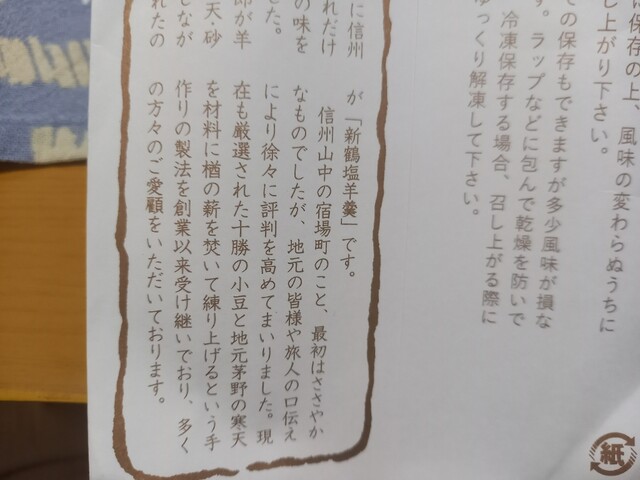 に保存の上、風味の変わらぬうちに
し上がり下さい。
での保存もできますが多少風味が損な
す。ラップなどに包んで乾燥を防いで
冷凍保存する場合、召し上がる際に
ゆっくり解凍して下さい。
に信州
れだけ
の味を
した。
郎が羊
天・砂
しなが
れたの
が「新鶴塩羊羹」です。
信州山中の宿場町のこと、最初はささやか
なものでしたが、地元の皆様や旅人の口伝え
により徐々に評判を高めてまいりました。現
在も厳選された十勝の小豆と地元茅野の寒天
を材料に楢の薪を焚いて練り上げるという手
作りの製法を創業以来受け継いでおり、多く
の方々のご愛顧をいただいております。
紙